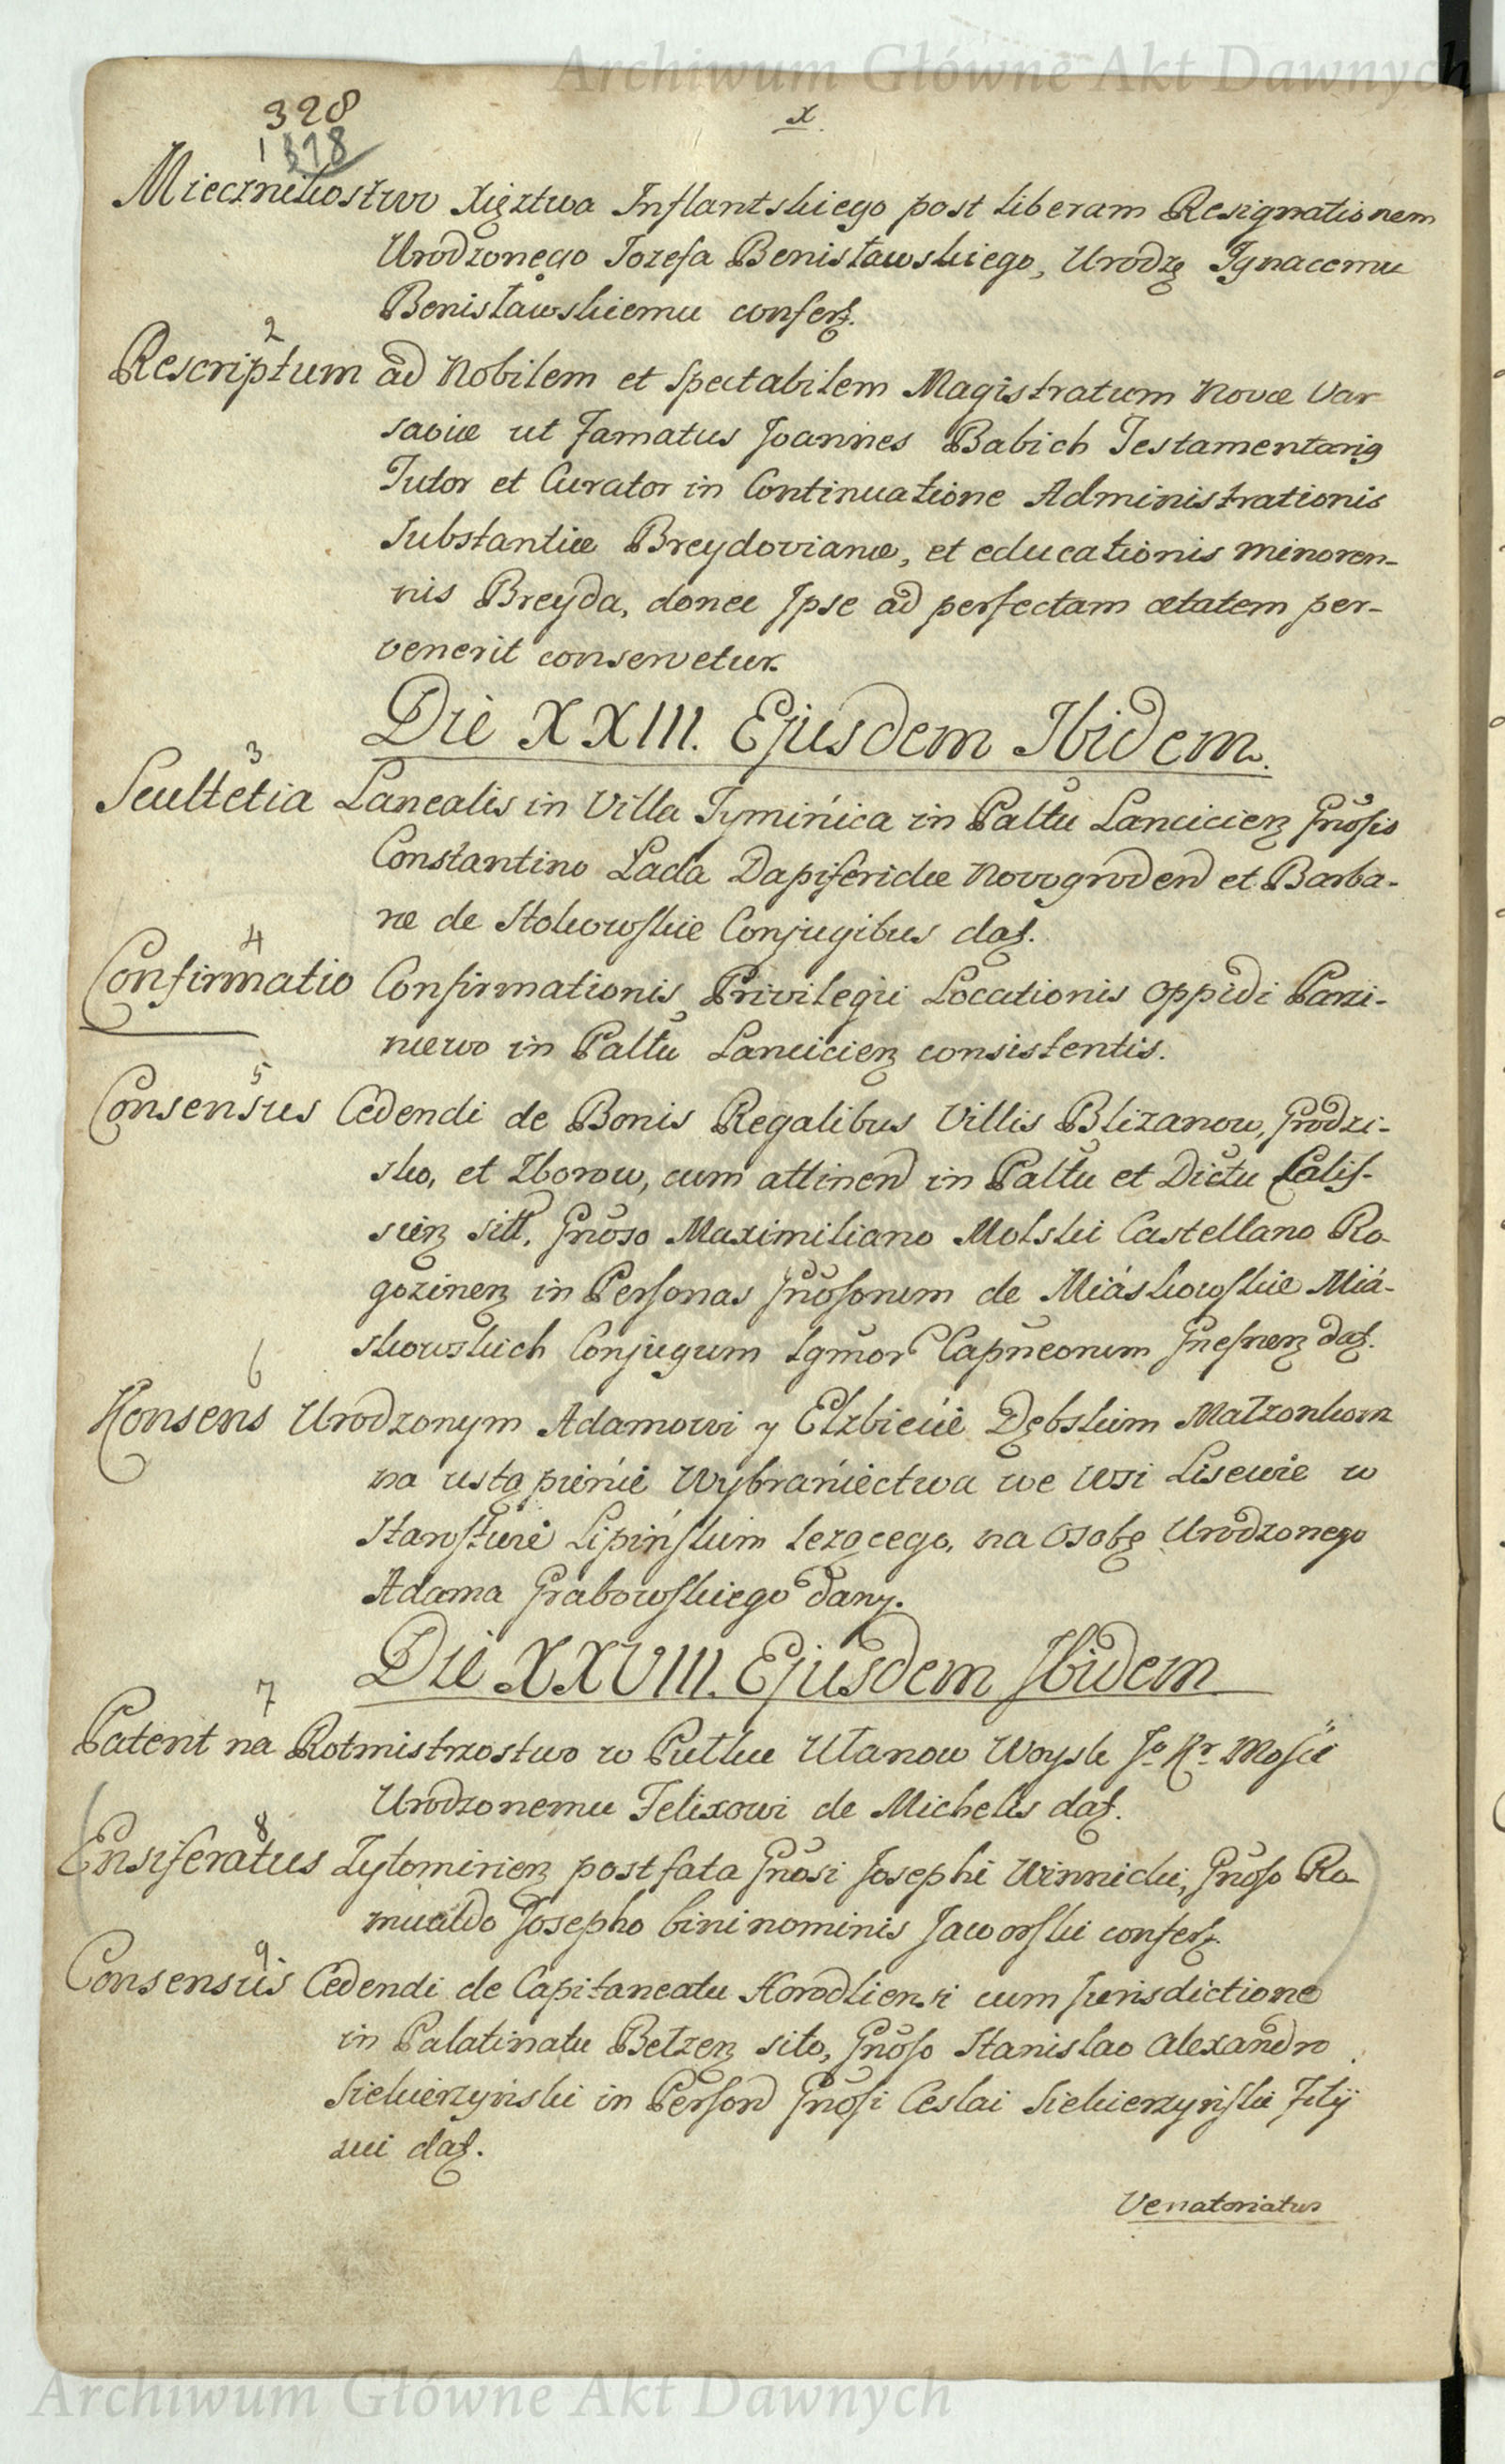 Archiwum Główne Akt Dawnych
328
x
1 318
Miecznikostwo Xięztwa Inflantskiego post liberam Resignationem
Urodzonego Jozefa Benisławskiego, Urodzę Ignacemu
Benisławskiemu confert.
2
Rescriptum ad Nobilem et Spectabilem Magistratum Novæ Var
saviæ ut Famatus Joannes Babich Testamentarig
Tutor et Curator in Continuatione Administrationis
Substantiæ Breydovianæ, et educationis minoren-
nis Breyda, donec Ipse ad perfectam ætatem per-
venerit conservetur.
Die XXIII. Ejusdem Ibidem.
3
Scultetia Lanealis in Villa Tyminica in Palłu Lanciciez Gnosis
Constantino Łada Dapiferidæ Novogroden et Barba-
ræ de Stokowskie Conjugibus dat.
4
Confirmatio Confirmationis Privilegii Locationis Oppidi Parzi-
niewo in Palłu Lanciciez consistentis.
5
Consensus Cedendi de Bonis Regalibus Villis Blizanow, Grodzi-
sko, et Zborow, cum attinen in Palłu et Dictu Calis-
siez sitt. Gnoso Maximiliano Molski Castellano Ro
gozinez in Personas Gnosorum de Miaskowskie Mia-
skowskich Conjugum Lgmor Capneorum Gnesnez dat.
6
Konsens Urodzonym Adamowi y Elzbiecie Dębskim Małzonkom
na ustąpienie Wybraniectwa we Wsi Lisewie w
Starostwie Lipinskim lezącego, na Osobę Urodzonego
Adama Grabowskiego dany.
Die XXVIII. Ejusdem Ibidem
7
Patent na Rotmistrzostwo w Pułku Ułanow Woysk Jo Kr Mosci
Urodzonemu Felixowi de Michelis dat.
8
Ensiferatus Zytomiriez post fata Gnosi Josephi Winnicki, Gnoso Ro
mualdo Josepho bini nominis Jaworski confert.
9
Consensus Cedendi de Capitaneatu Horodliensi cum Jurisdictione
in Palatinatu Belzez sito, Gnoso Stanislao Alexandro
Siekierzyński in Person Gnosi Ceslai Siekierzyński Filij
sui dat.
Venatoriatus
Archiwum Główne Akt Dawnych